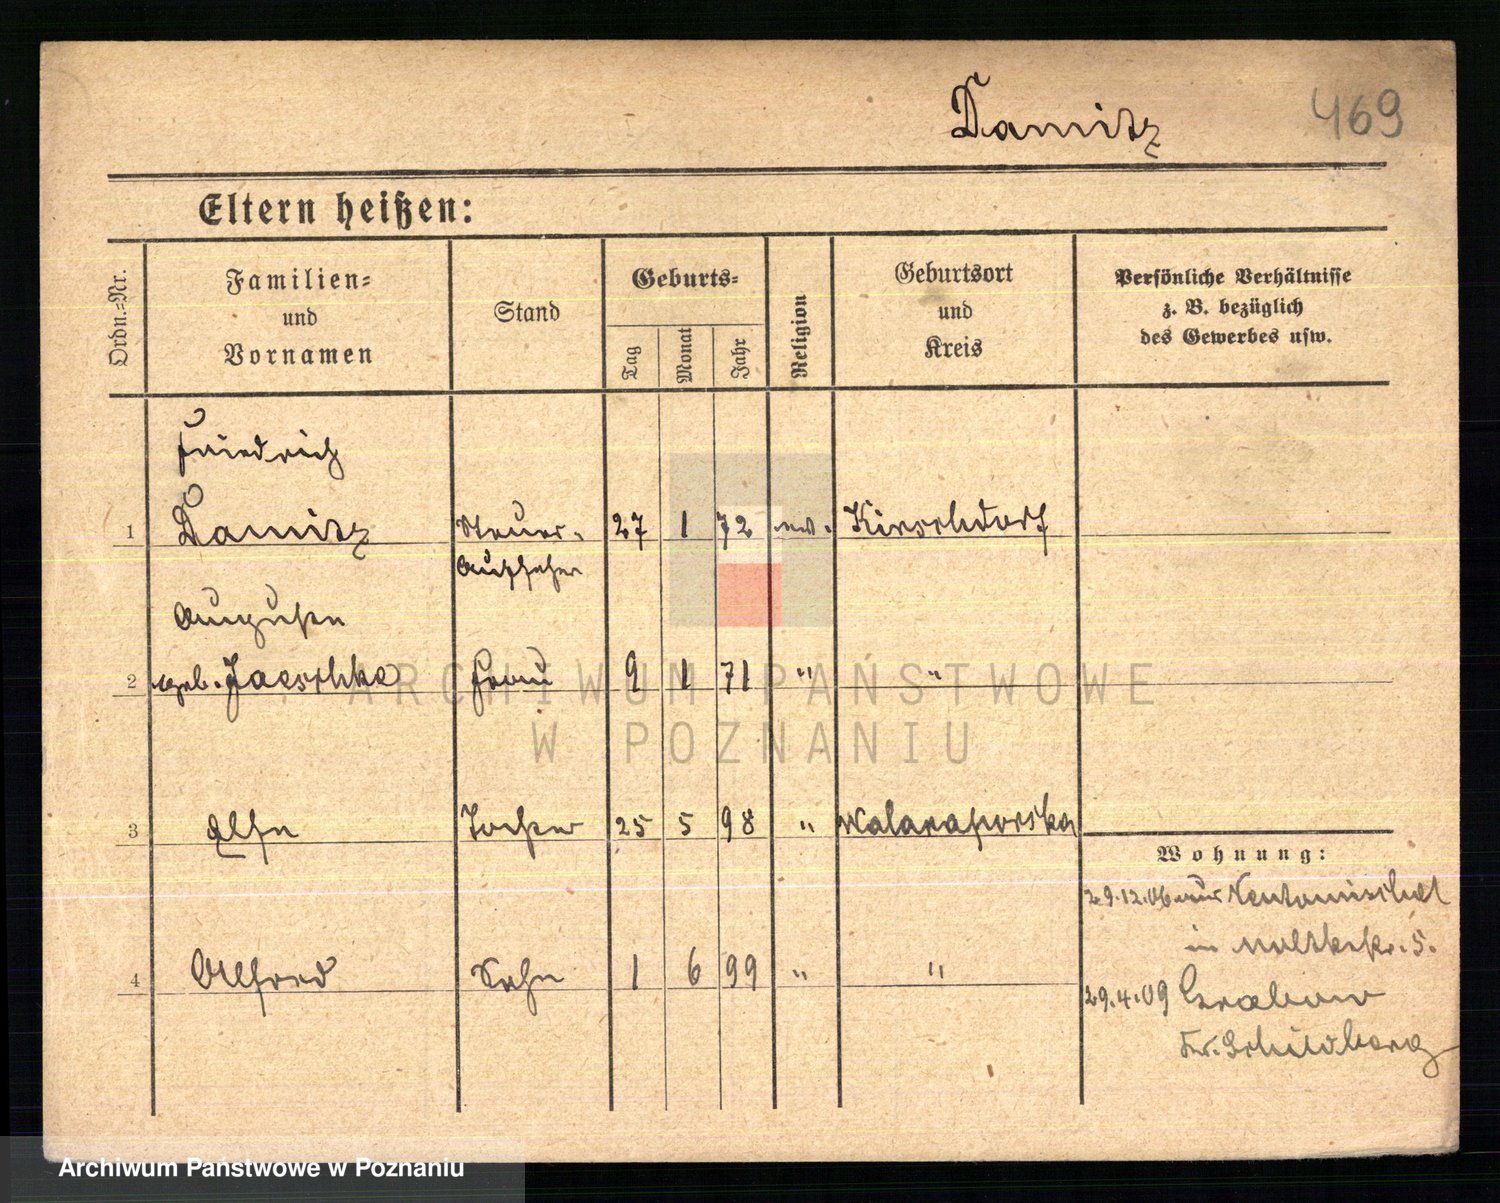 Damitz 469
Eltern heißen:
Ordn.=Nr.
Familien=
und
Vornamen
Stand
Geburts=
Tag
Monat
Jahr
Religion
Geburtsort
und
Kreis
Persönliche Verhältnisse
z. B. bezüglich
des Gewerbes usw.
Friedrich
1 Damitz Steuer- 27 1 72 ev. Kirschdorf
Aufseher
Auguste
2 geb. Jaeschke Frau 9 1 71 " "
3 Else Tochter 25 5 98 "
Wohnung:
29.12.06 aus
in Moltkestr. 5.
4 Alfred Sohn 1 6 99 " "
29.4.09 Grabow
Kr. Schildberg
ARCHIWUM PAŃSTWOWE
W POZNANIU
Archiwum Państwowe w Poznaniu